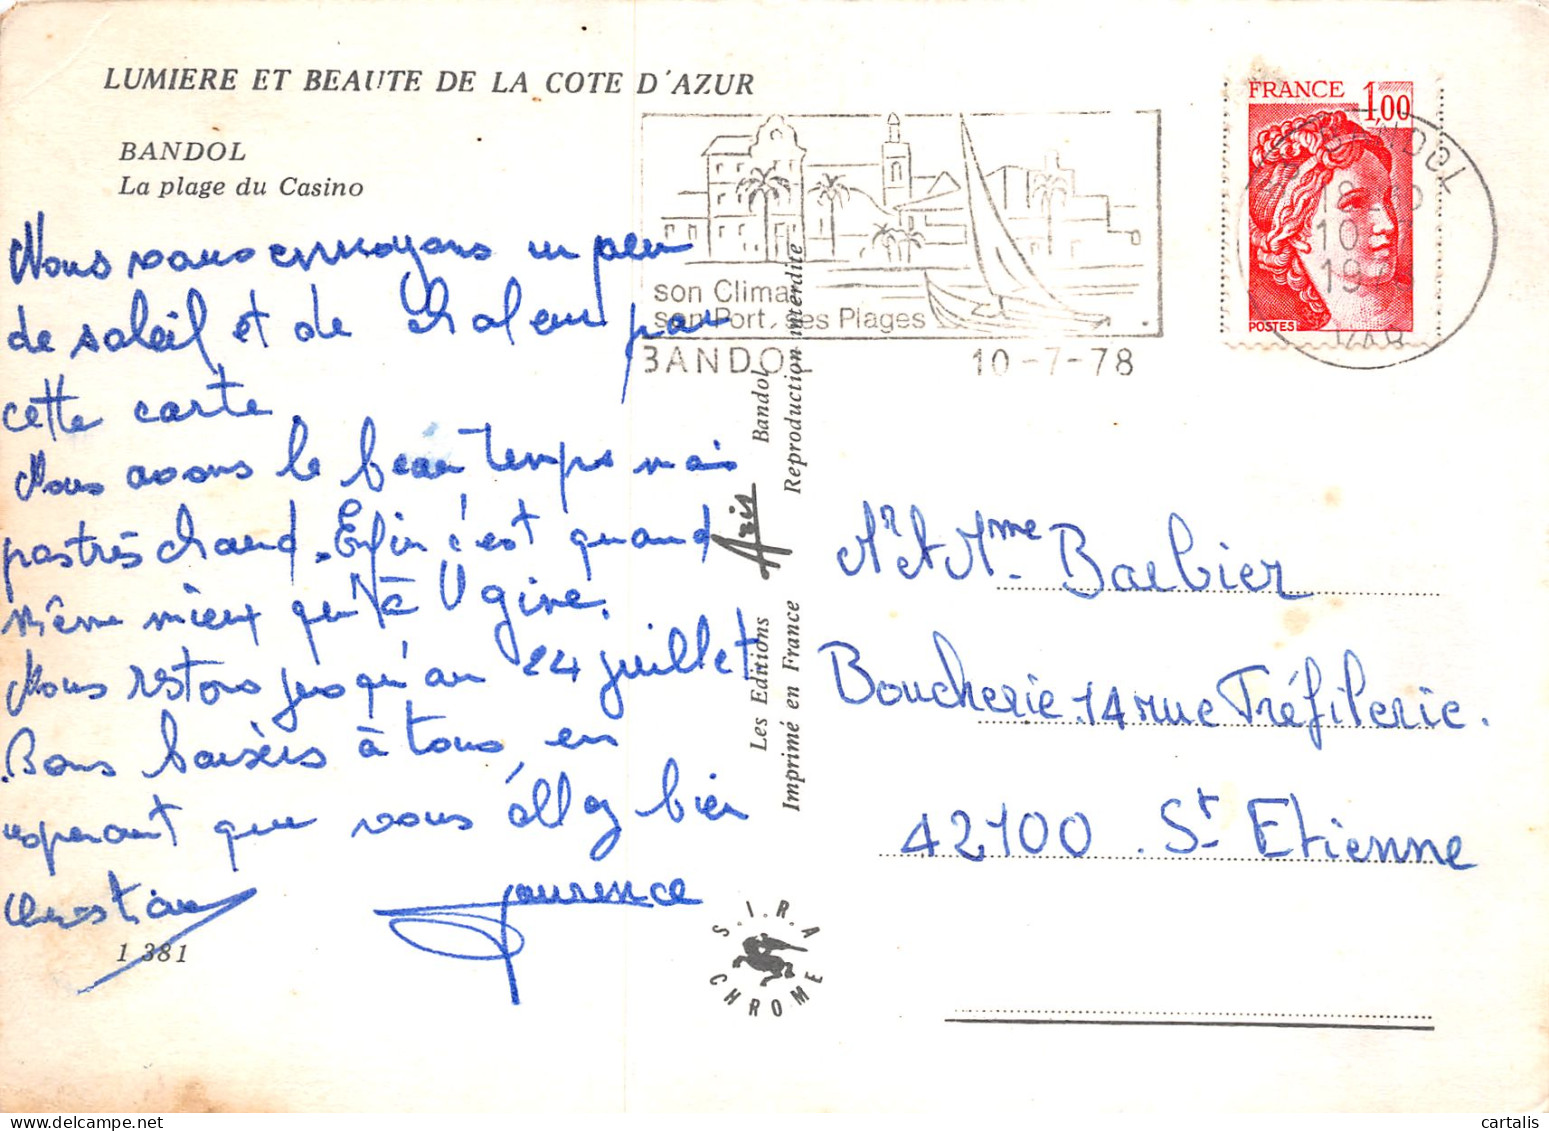 LUMIERE ET BEAUTE DE LA COTE D'AZUR
BANDOL
La plage du Casino
Nous vous envoyons un peu
de soleil et de chaleur par
cette carte.
Nous avons le beau temps mais
pas très chaud. Enfin c'est quand
même mieux qu'à Ugine.
Nous restons jusqu'au 24 juillet
Bons baisers à tous, en
esperant que vous allez bien
Christian
Laurence
1 381
son Climat
son Port, ses Plages
BANDOL 10-7-78
FRANCE 1,00
POSTES
BANDOL
10-7
1978
VAR
Les Editions Aris Bandol
Imprimé en France Reproduction interdite
S.I.R.A
CHROME
Mr & Mme Barbier
Boucherie 14 rue Tréfilerie.
42100. St Etienne
cartalis.com